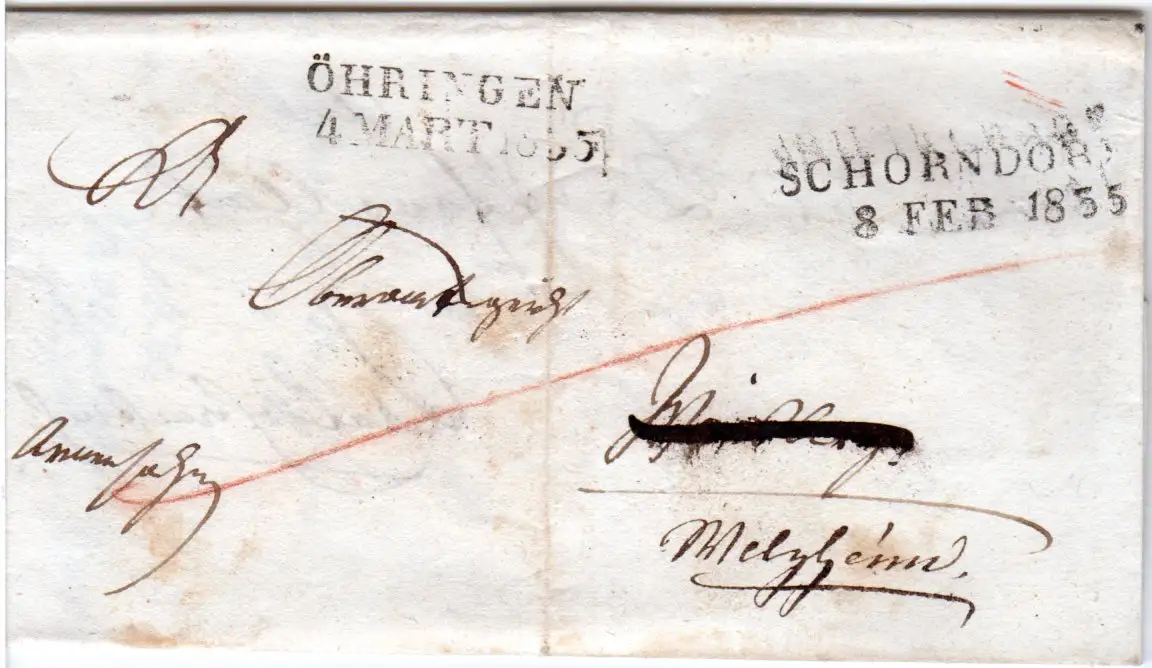 ÖHRINGEN
4 MART 1835
SCHORNDORF
8 FEB 1835
Oberamtsgericht
Armensache
Welzheim.